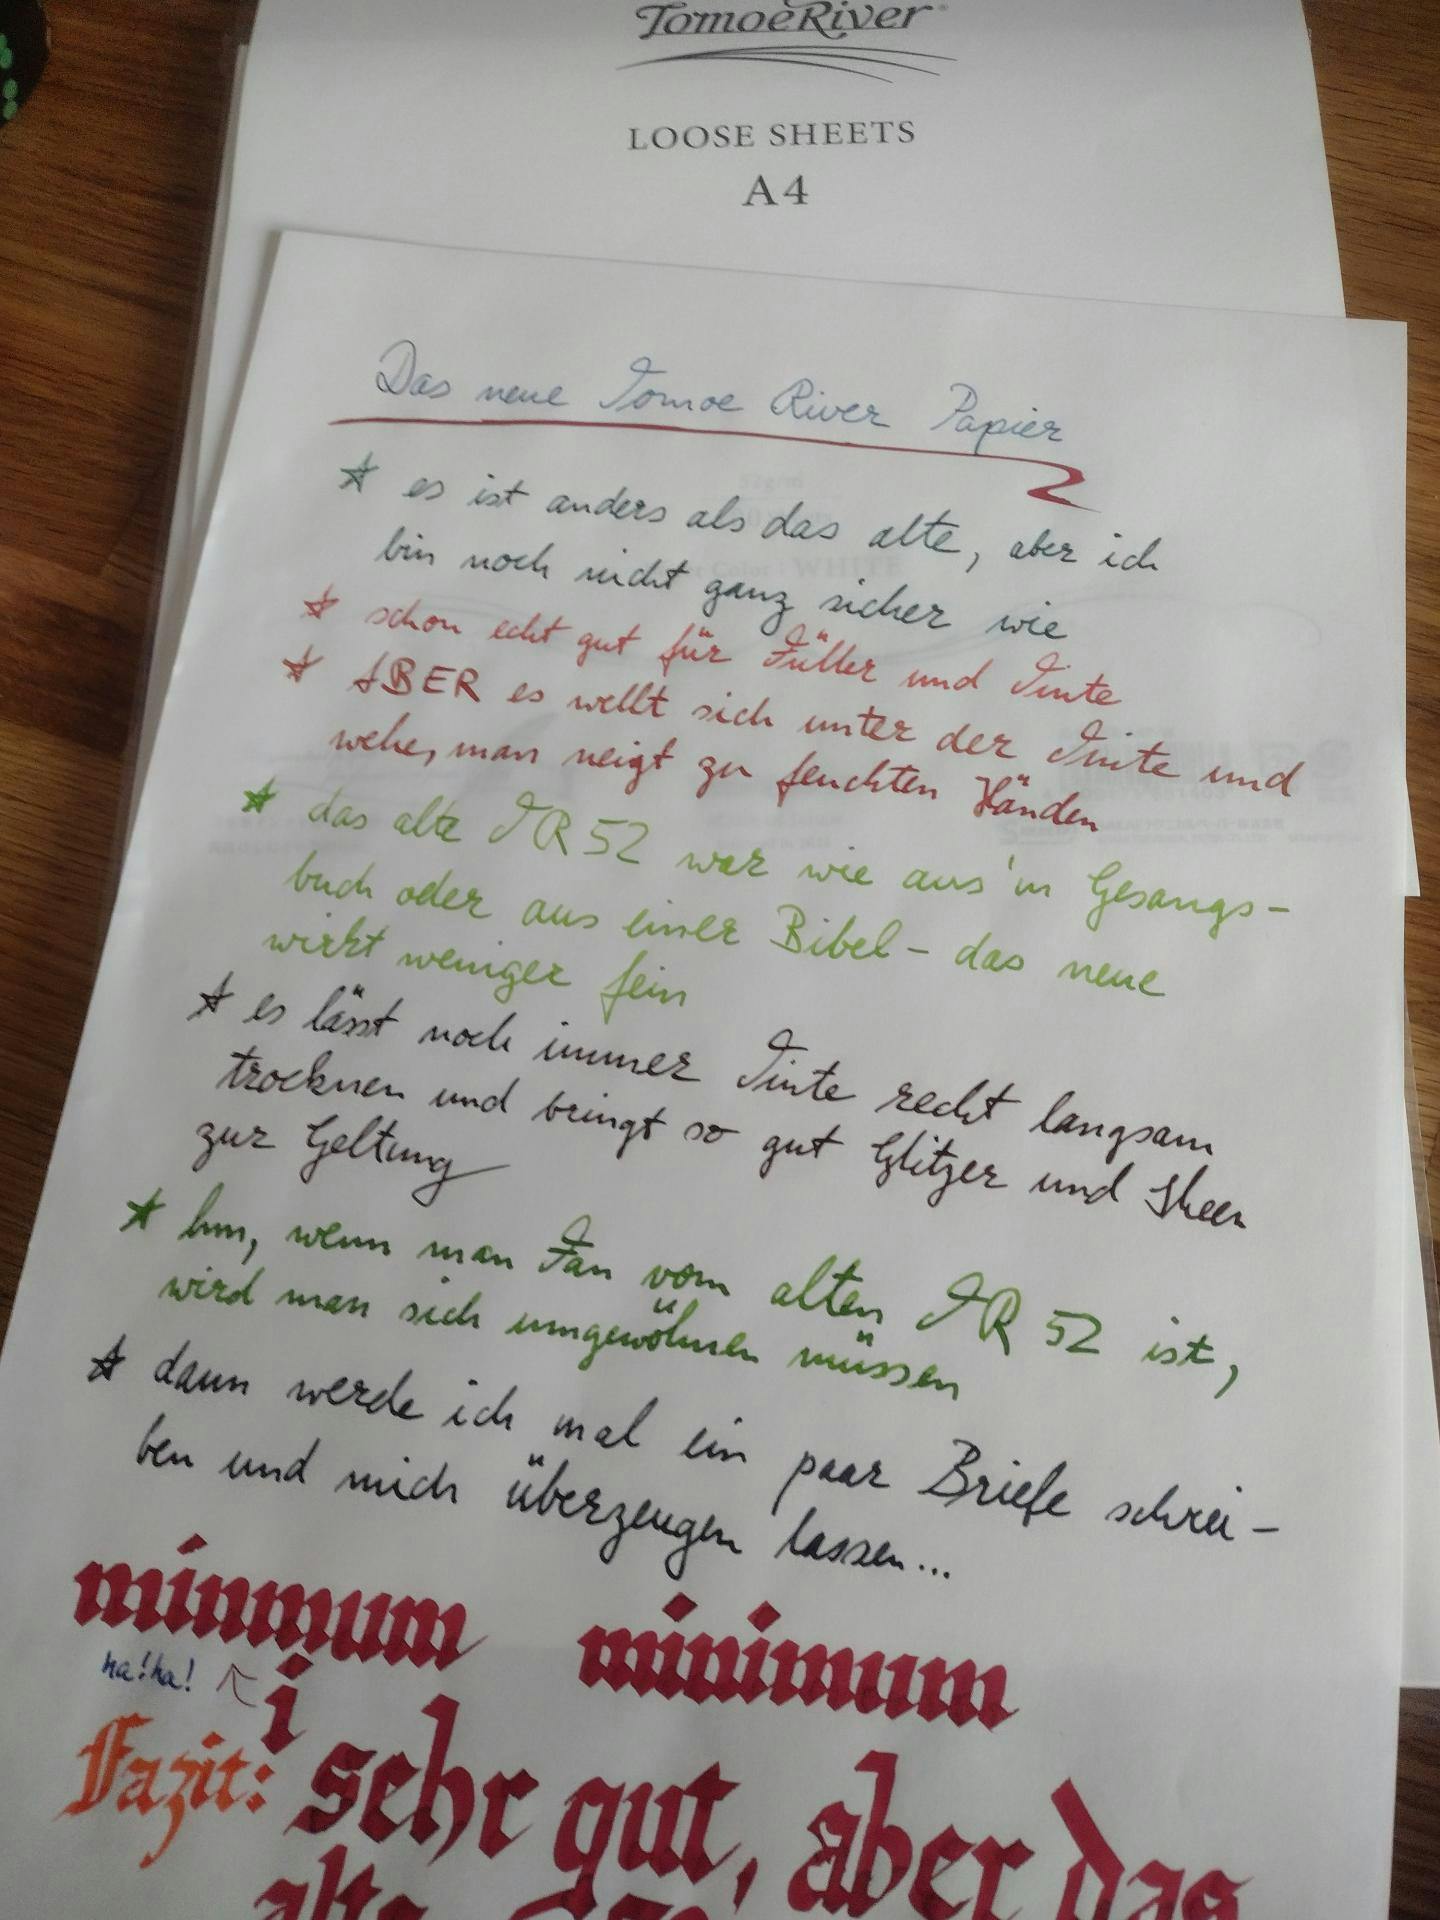 TomoeRiver
LOOSE SHEETS
A4
Das neue Tomoe River Papier
52g/m²
Color: WHITE
* es ist anders als das alte, aber ich
bin noch nicht ganz sicher wie
* schon echt gut für Füller und Tinte
* ABER es wellt sich unter der Tinte und
wehe, man neigt zu feuchten Händen
* das alte TR 52 war wie aus'm Gesangs-
buch oder aus einer Bibel - das neue
wirkt weniger fein
* es lässt noch immer Tinte recht langsam
trocknen und bringt so gut Glitzer und Sheen
zur Geltung
* hm, wenn man Fan vom alten TR 52 ist,
wird man sich umgewöhnen müssen
* dann werde ich mal ein paar Briefe schrei-
ben und mich überzeugen lassen...
minmum minimum
ha!ha!
i
Fazit: sehr gut, aber das
alte